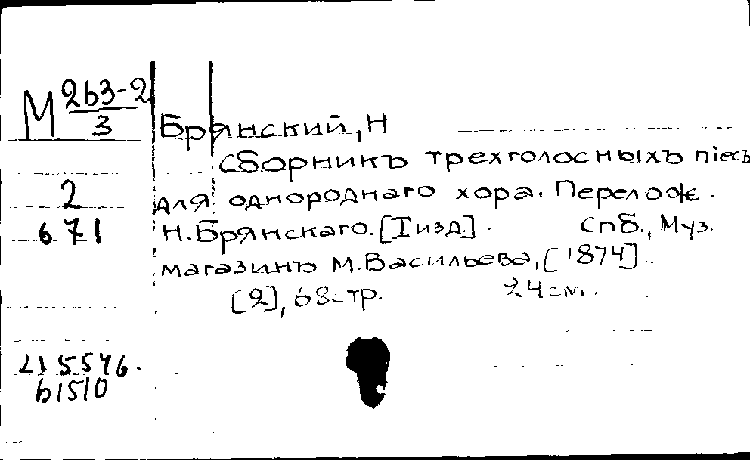 М 263-2
3
Брянский, Н
Сборникъ трехголосныхъ пiесъ
2
для однороднаго хора. Перелож.
671
Н. Брянскаго. [I изд.]. Спб., Муз.
магазинъ М. Васильева, [1874].
[2], 68 стр. 24 см.
215546.
61510